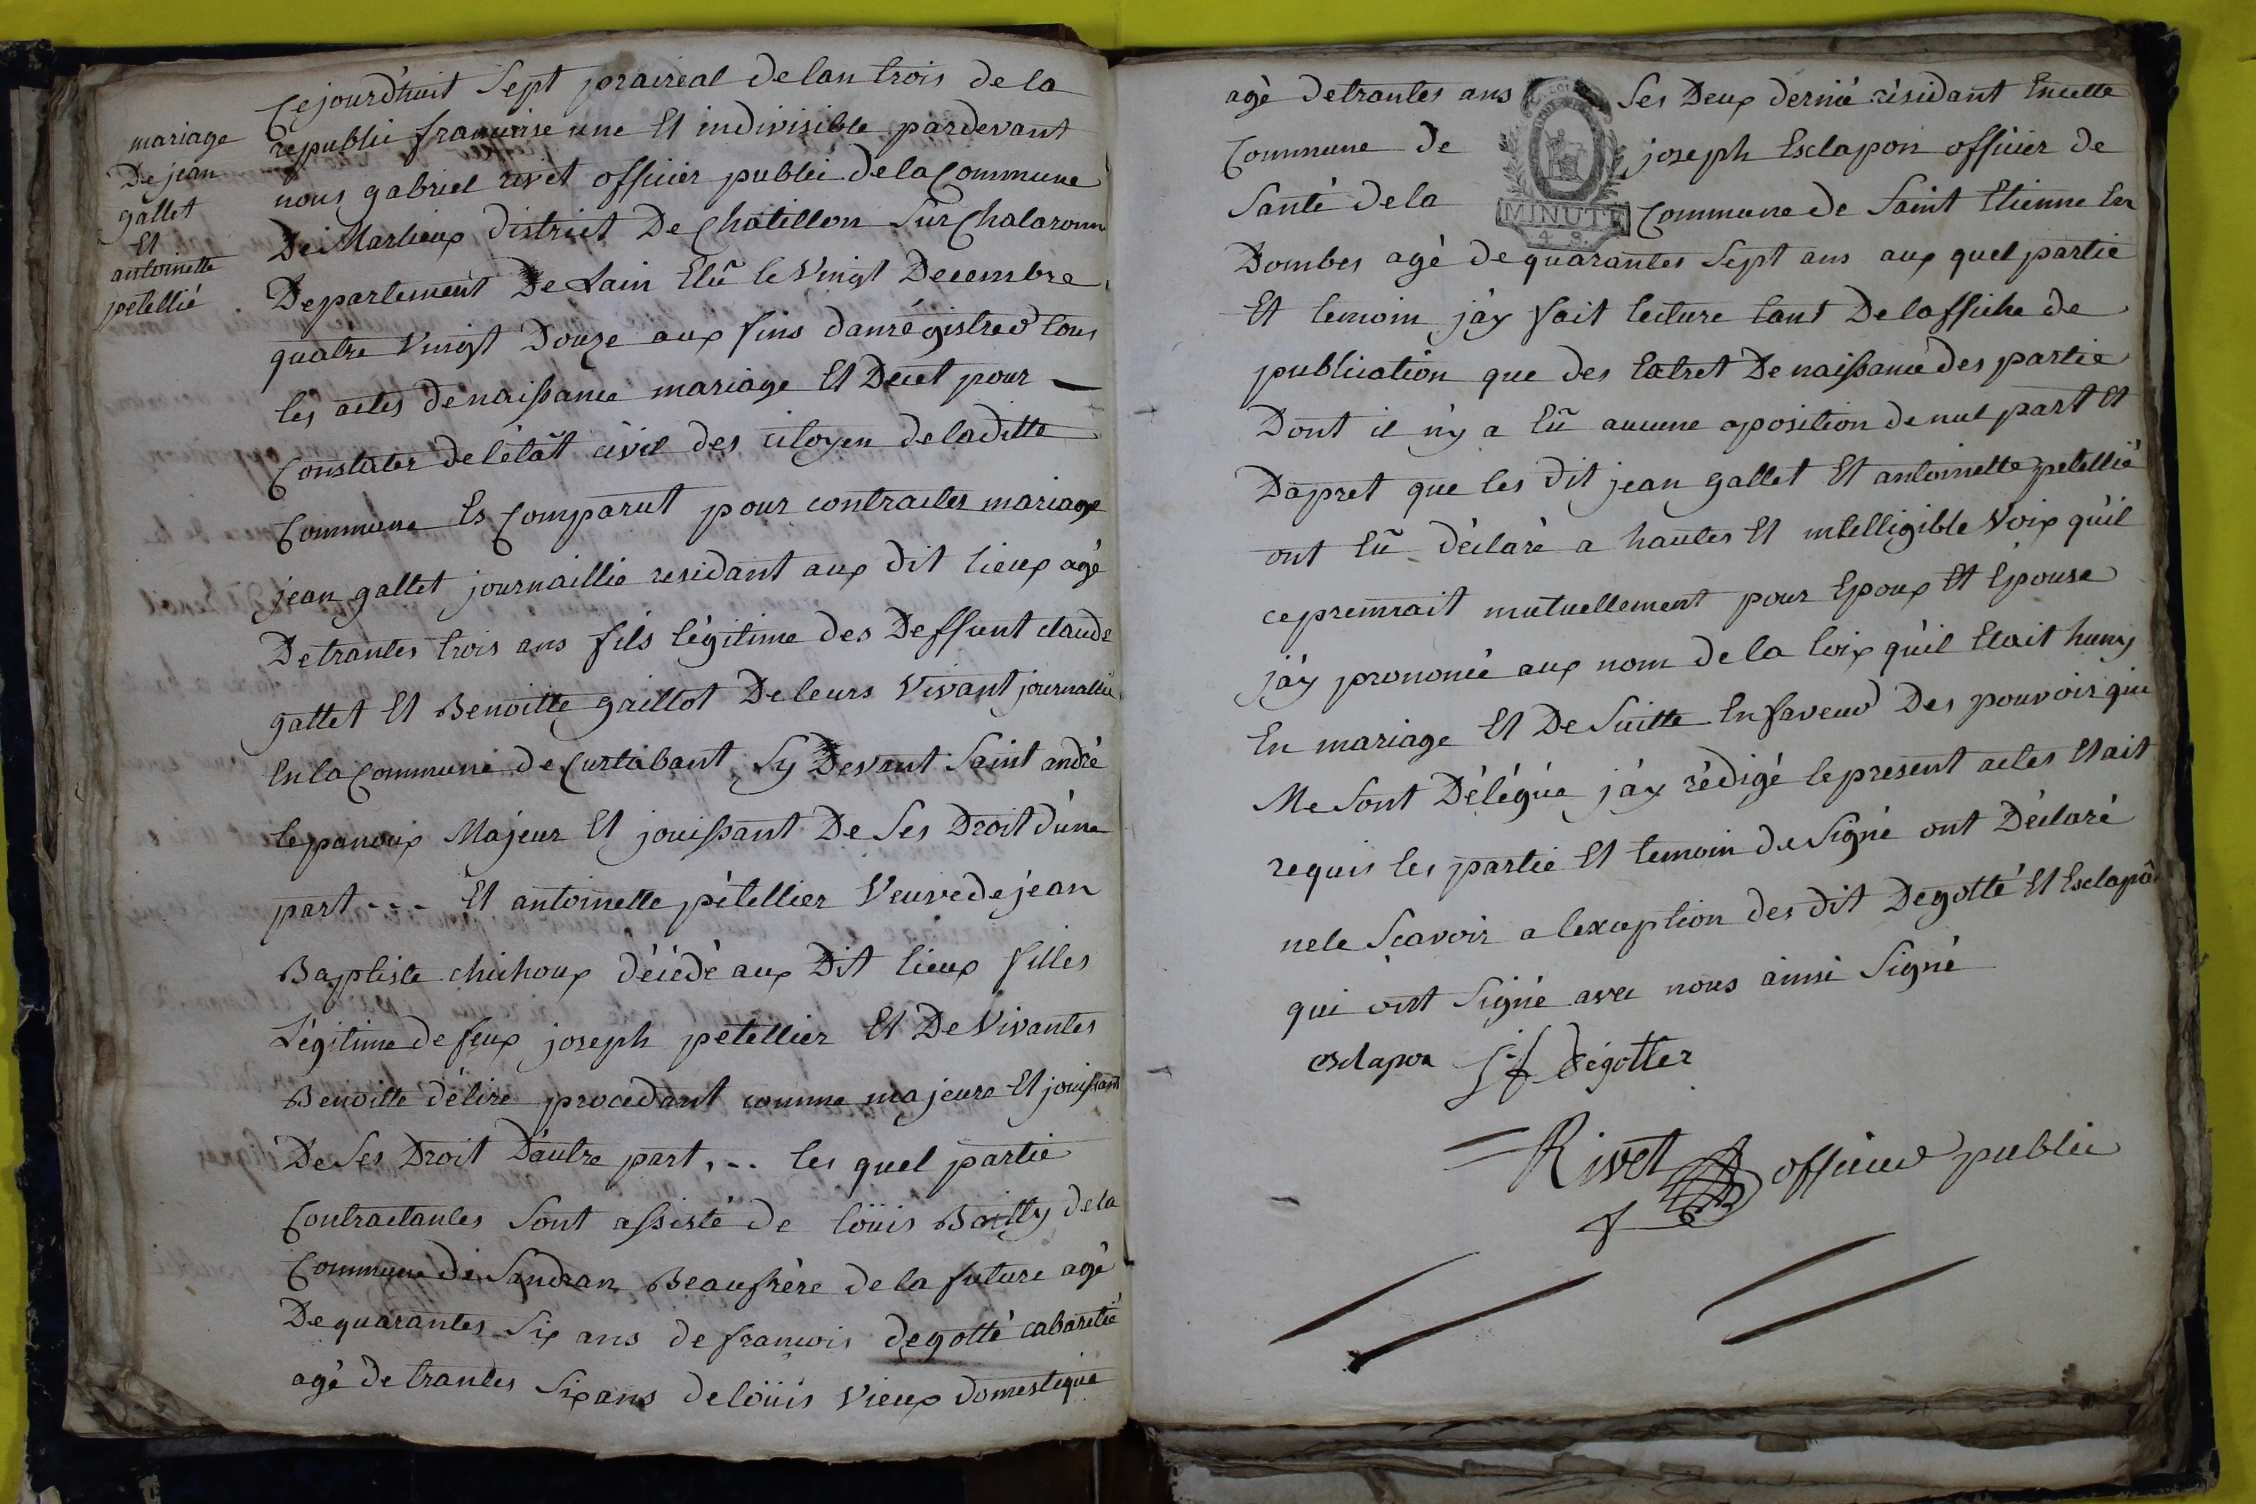 mariage
De jean
gallet
Et
antoinette
petellié
Cejourd'huit Sept praireal de lan trois de la
republic francaise une Et indivisible pardevant
nous gabriel rivet officier public de la Commune
De Marlieux district De Chatillon Sur Chalaronne
Departement De Lain Elû le Vingt Decembre
quatre Vingt Douze aux fins danrégistrer tous
les actes de naissance mariage Et Decet pour
Constater de létât civil des citoyen de laditte
Commune Es Comparut pour contracter mariage
jean gallet journaillie residant aux dit lieux agé
De trantes trois ans fils légitime des Deffunt claude
gallet Et Benoitte gaillot De leurs Vivant journallié
En la Commune de Curtabant Sy Devant Saint andré
lepanoux Majeur Et jouissant De Ses Droit d'une
part - - - Et antoinette pétellier Veuve de jean
Baptiste chichoux décédé aux Dit lieux filles
Légitime de feux joseph petellier Et De Vivantes
Benoitte délire procédant comme majeure Et jouissant
De Ses Droit D'autre part , - - les quel partie
Contractantes Sont assisté de loüis Bailly de la
Commune de Sandran Beaufrère de la future agé
De quarantes Six ans de francois degotté cabaretié
agé de trantes Six ans de loüis Vieux domestique
agé de trantes ans Ses Deux dernié résidant En cette
Commune de joseph Esclapon officier de
Santé de la Commune de Saint Etienne En
MINUTE
4 S.
Dombes agé de quarantes Sept ans aux quel partie
Et temoin j'ay fait lecture tant De laffiche de
publication que des Extret De naissance des partie
Dont il n'y a Eû aucune oposition de nul part Et
Dapret que les dit jean gallet Et antoinette petellié
ont Eû déclaré a hautes Et intelligible Voix qu'il
ce premrait mutuellement pour Epoux Et Epouse
j'ay prononcé aux nom de la loix qu'il Etait huny
En mariage Et De Suitte En faveur Des pouvoir qui
Me Sont Délégué j'ay rédigé le present actes Et ait
requis les partie Et temoin de Signé ont Déclaré
ne le Scavoir a lexception des dit Degotté Et Esclapon
qui ont Signé avec nous ainsi Signé
Esclapon Sf Dégotter
Rivet officier public